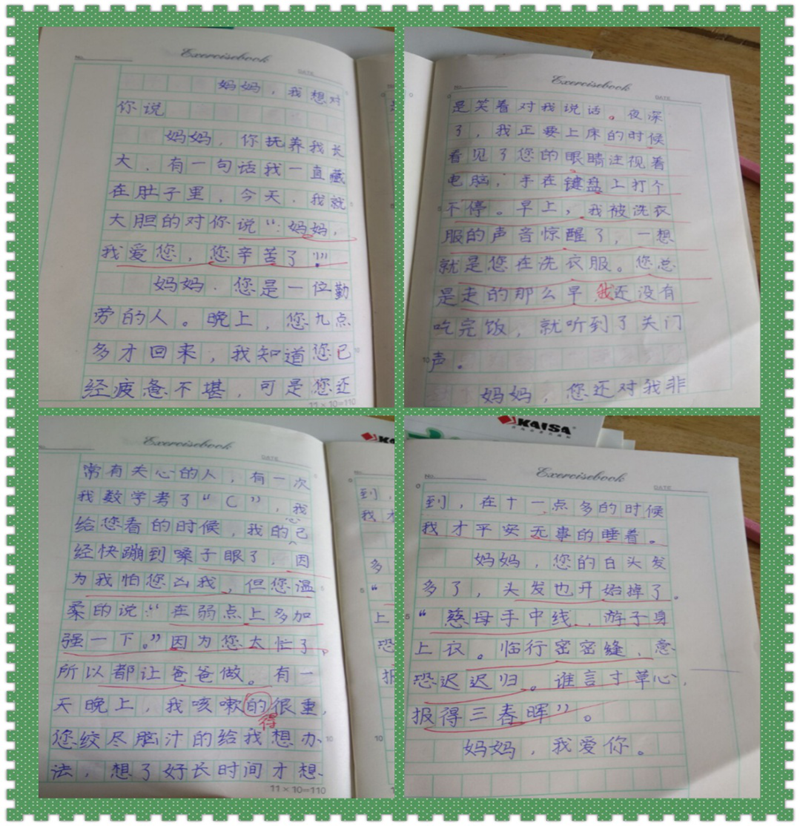 Exercisebook
DATE
妈妈,我想对
你说
妈妈,你抚养我长
大,有一句话我一直藏
在肚子里,今天,我就
大胆的对你说“:妈妈,
我爱您,您辛苦了!”
妈妈,您是一位勤
劳的人。晚上,您九点
多才回来,我知道您已
经疲惫不堪,可是您还
11×10=110
Exercisebook
DATE
是笑着对我说话。夜深
了,我正要上床的时候
看见了您的眼睛注视着
电脑,手在键盘上打个
不停。早上,我被洗衣
服的声音惊醒了,一想
就是您在洗衣服。您总
是走的那么早我还没有
吃完饭,就听到了关门
声。
妈妈,您还对我非
Exercisebook
DATE
常有关心的人,有一次
我数学考了“C”,我
给您看的时候,我的心已
经快蹦到嗓子眼了,因
为我怕您凶我,但您温
柔的说:“在弱点上多加
强一下。”因为您太忙了,
所以都让爸爸做。有一
天晚上,我咳嗽的很重,
得
您绞尽脑汁的给我想办
法,想了好长时间才想
11×10=110
KAISA
Exercisebook
DATE
到,在十一点多的时候
我才平安无事的睡着。
妈妈,您的白头发
多了,头发也开始掉了。
“慈母手中线,游子身
上衣。临行密密缝,意
恐迟迟归。谁言寸草心,
报得三春晖”。
妈妈,我爱你。